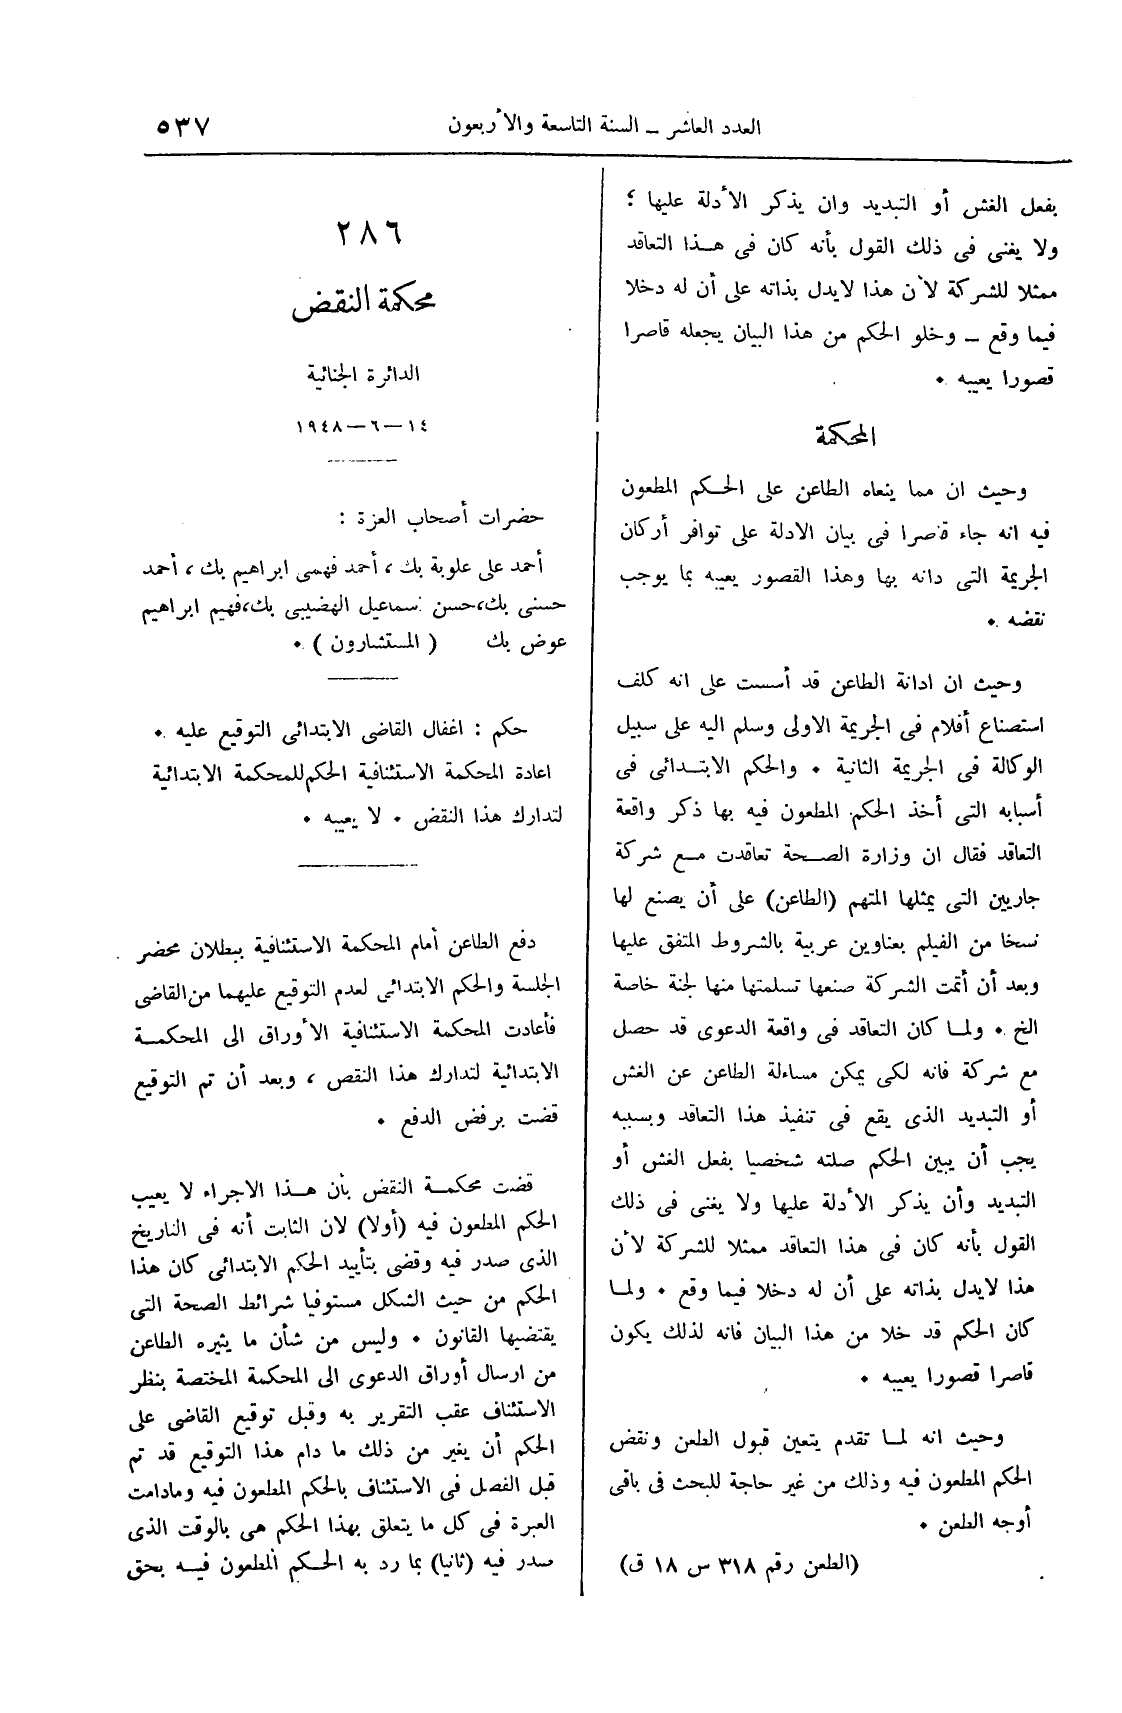 العدد العاشر ــ السنة التاسعة والأربعون
٥٣٧
بفعل الغش أو التبديد وان يذكر الأدلة عليها ؛
ولا يغنى فى ذلك القول بأنه كان فى هذا التعاقد
ممثلا للشركة لأن هذا لايدل بذاته على أن له دخلا
فيما وقع ــ وخلو الحكم من هذا البيان يجعله قاصرا
قصورا يعيبه ٠
المحكمة
وحيث ان مما ينعاه الطاعن على الحكم المطعون
فيه انه جاء قاصرا فى بيان الادلة على توافر أركان
الجريمة التى دانه بها وهذا القصور يعيبه بما يوجب
نقضه ٠
وحيث ان ادانة الطاعن قد أسست على انه كلف
استصناع أفلام فى الجريمة الاولى وسلم اليه على سبيل
الوكالة فى الجريمة الثانية ٠ والحكم الابتدائى فى
أسبابه التى أخذ الحكم المطعون فيه بها ذكر واقعة
التعاقد فقال ان وزارة الصحة تعاقدت مع شركة
جاريين التى يمثلها المتهم (الطاعن) على أن يصنع لها
نسخا من الفيلم بعناوين عربية بالشروط المتفق عليها
وبعد أن أتمت الشركة صنعها تسلمتها منها لجنة خاصة
الخ ٠ ولما كان التعاقد فى واقعة الدعوى قد حصل
مع شركة فانه لكى يمكن مساءلة الطاعن عن الغش
أو التبديد الذى يقع فى تنفيذ هذا التعاقد وبسببه
يجب أن يبين الحكم صلته شخصيا بفعل الغش أو
التبديد وأن يذكر الأدلة عليها ولا يغنى فى ذلك
القول بأنه كان فى هذا التعاقد ممثلا للشركة لأن
هذا لايدل بذاته على أن له دخلا فيما وقع ٠ ولما
كان الحكم قد خلا من هذا البيان فانه لذلك يكون
قاصرا قصورا يعيبه ٠
وحيث انه لما تقدم يتعين قبول الطعن ونقض
الحكم المطعون فيه وذلك من غير حاجة للبحث فى باقى
أوجه الطعن ٠
(الطعن رقم ٣١٨ س ١٨ ق)
٢٨٦
محكمة النقض
الدائرة الجنائية
١٤ــ٦ــ١٩٤٨
حضرات أصحاب العزة :
أحمد على علوبة بك ، أحمد فهمى ابراهيم بك ، أحمد
حسنى بك،حسن اسماعيل الهضيبى بك،فهيم ابراهيم
عوض بك ( المستشارون ) ٠
حكم : اغفال القاضى الابتدائى التوقيع عليه ٠
اعادة المحكمة الاستئنافية الحكم للمحكمة الابتدائية
لتدارك هذا النقض ٠ لا يعيبه ٠
دفع الطاعن أمام المحكمة الاستئنافية ببطلان محضر
الجلسة والحكم الابتدائى لعدم التوقيع عليهما من القاضى
فأعادت المحكمة الاستئنافية الأوراق الى المحكمة
الابتدائية لتدارك هذا النقص ، وبعد أن تم التوقيع
قضت برفض الدفع ٠
قضت محكمة النقض بأن هذا الاجراء لا يعيب
الحكم المطعون فيه (أولا) لان الثابت أنه فى التاريخ
الذى صدر فيه وقضى بتأييد الحكم الابتدائى كان هذا
الحكم من حيث الشكل مستوفيا شرائط الصحة التى
يقتضيها القانون ٠ وليس من شأن ما يثيره الطاعن
من ارسال أوراق الدعوى الى المحكمة المختصة بنظر
الاستئناف عقب التقرير به وقبل توقيع القاضى على
الحكم أن يغير من ذلك ما دام هذا التوقيع قد تم
قبل الفصل فى الاستئناف بالحكم المطعون فيه ومادامت
العبرة فى كل ما يتعلق بهذا الحكم هى بالوقت الذى
صدر فيه (ثانيا) بما رد به الحكم المطعون فيه بحق